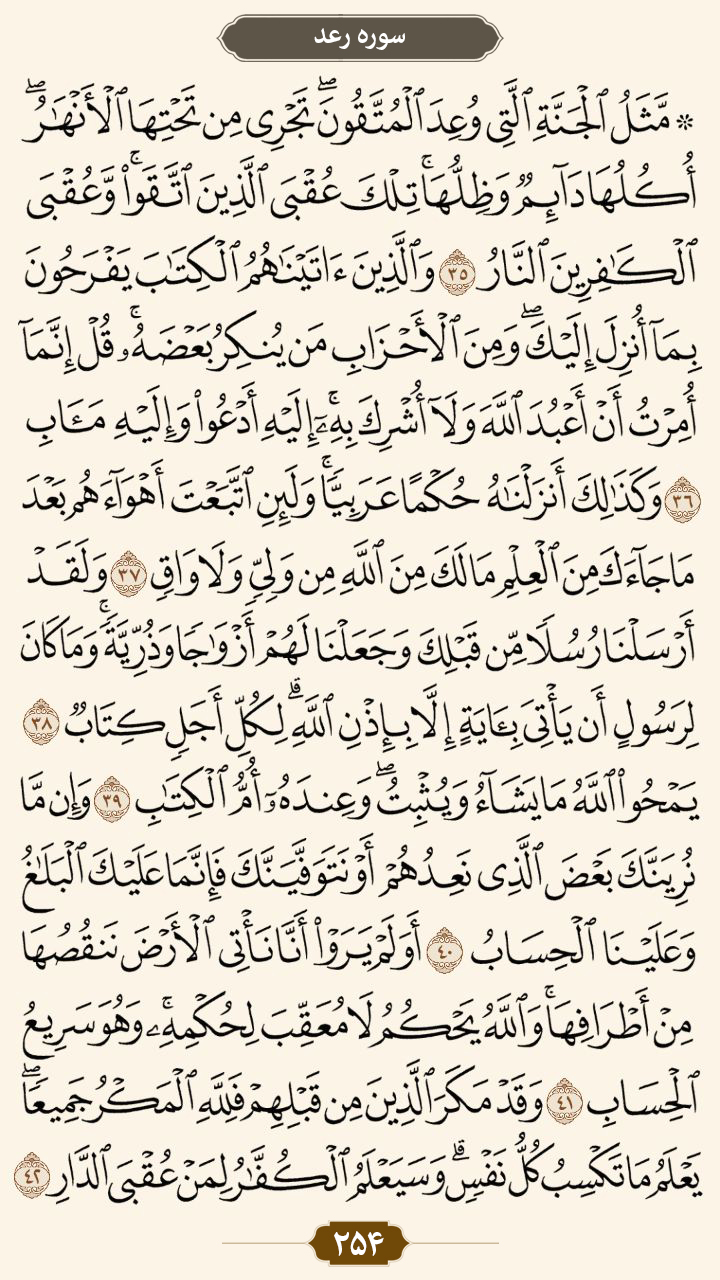 سوره رعد
۞ مَّثَلُ ٱلْجَنَّةِ ٱلَّتِى وُعِدَ ٱلْمُتَّقُونَ ۖ تَجْرِى مِن تَحْتِهَا ٱلْأَنْهَٰرُ ۖ
أُكُلُهَا دَآئِمٌ وَظِلُّهَا ۚ تِلْكَ عُقْبَى ٱلَّذِينَ ٱتَّقَوا۟ ۚ وَّعُقْبَى
ٱلْكَٰفِرِينَ ٱلنَّارُ ٣٥ وَٱلَّذِينَ ءَاتَيْنَٰهُمُ ٱلْكِتَٰبَ يَفْرَحُونَ
بِمَآ أُنزِلَ إِلَيْكَ ۖ وَمِنَ ٱلْأَحْزَابِ مَن يُنكِرُ بَعْضَهُۥ ۚ قُلْ إِنَّمَآ
أُمِرْتُ أَنْ أَعْبُدَ ٱللَّهَ وَلَآ أُشْرِكَ بِهِۦٓ ۚ إِلَيْهِ أَدْعُوا۟ وَإِلَيْهِ مَـَٔابِ
٣٦ وَكَذَٰلِكَ أَنزَلْنَٰهُ حُكْمًا عَرَبِيًّا ۚ وَلَئِنِ ٱتَّبَعْتَ أَهْوَآءَهُم بَعْدَ
مَا جَآءَكَ مِنَ ٱلْعِلْمِ مَا لَكَ مِنَ ٱللَّهِ مِن وَلِىٍّ وَلَا وَاقٍ ٣٧ وَلَقَدْ
أَرْسَلْنَا رُسُلًا مِّن قَبْلِكَ وَجَعَلْنَا لَهُمْ أَزْوَٰجًا وَذُرِّيَّةً ۚ وَمَا كَانَ
لِرَسُولٍ أَن يَأْتِىَ بِـَٔايَةٍ إِلَّا بِإِذْنِ ٱللَّهِ ۗ لِكُلِّ أَجَلٍ كِتَابٌ ٣٨
يَمْحُوا۟ ٱللَّهُ مَا يَشَآءُ وَيُثْبِتُ ۖ وَعِندَهُۥٓ أُمُّ ٱلْكِتَٰبِ ٣٩ وَإِن مَّا
نُرِيَنَّكَ بَعْضَ ٱلَّذِى نَعِدُهُمْ أَوْ نَتَوَفَّيَنَّكَ فَإِنَّمَا عَلَيْكَ ٱلْبَلَٰغُ
وَعَلَيْنَا ٱلْحِسَابُ ٤٠ أَوَلَمْ يَرَوْا۟ أَنَّا نَأْتِى ٱلْأَرْضَ نَنقُصُهَا
مِنْ أَطْرَافِهَا ۚ وَٱللَّهُ يَحْكُمُ لَا مُعَقِّبَ لِحُكْمِهِۦ ۚ وَهُوَ سَرِيعُ
ٱلْحِسَابِ ٤١ وَقَدْ مَكَرَ ٱلَّذِينَ مِن قَبْلِهِمْ فَلِلَّهِ ٱلْمَكْرُ جَمِيعًا ۖ
يَعْلَمُ مَا تَكْسِبُ كُلُّ نَفْسٍ ۗ وَسَيَعْلَمُ ٱلْكُفَّٰرُ لِمَنْ عُقْبَى ٱلدَّارِ ٤٢
۲۵۴